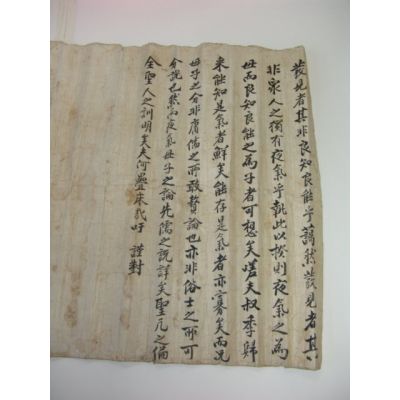 發見者其非良知良能乎藹然發見者其
非衆人之獨有夜氣乎執此以揆則夜氣之爲
母而良知良能之爲子者可想矣嗟夫叔季歸
來能知是氣者鮮矣能存是氣者亦寡矣而况
母子之分非膚儒之所敢贅論也亦非俗士之所可
分說也然而夜氣母子之論先儒之說詳矣聖凡之偏
全聖人之訓明矣夫何疊床哉吁 謹對